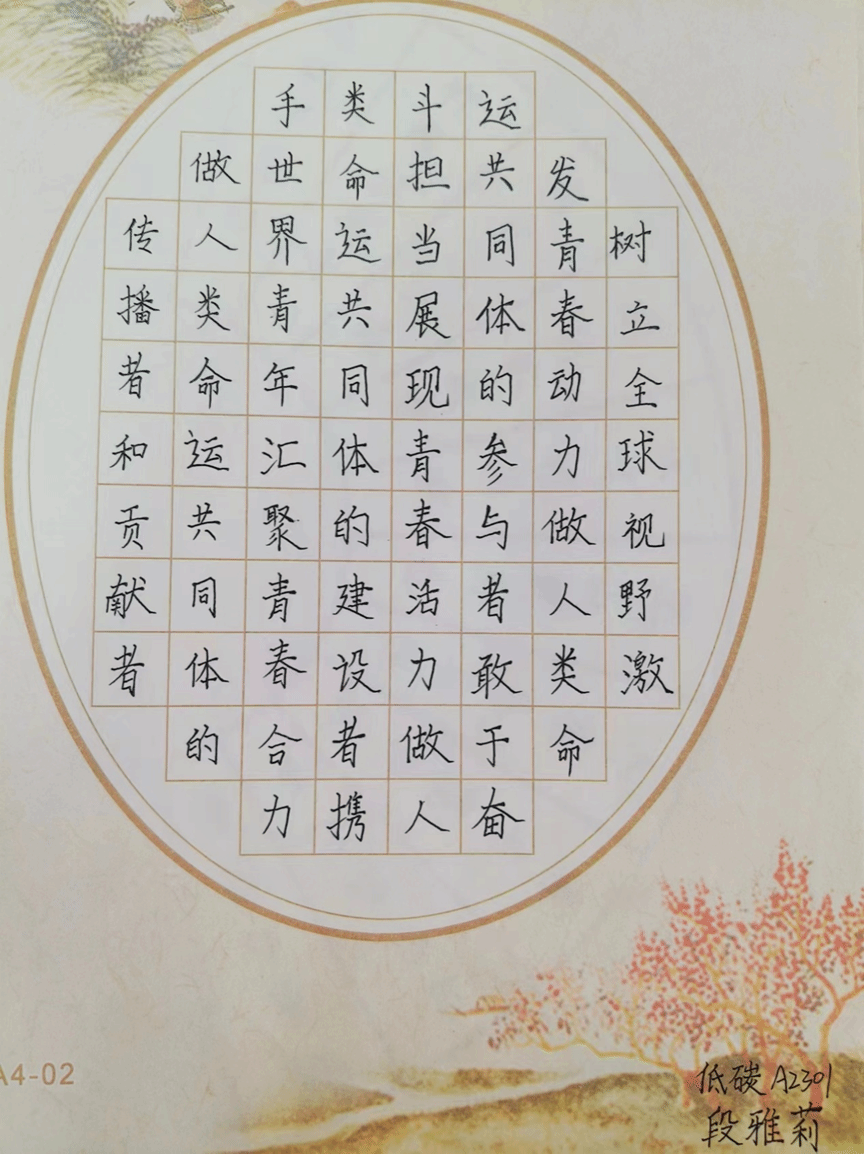 树立全球视野激
发青春动力做人类命
运共同体的参与者敢于奋
斗担当展现青春活力做人
类命运共同体的建设者携
手世界青年汇聚青春合力
做人类命运共同体的
传播者和贡献者
A4-02
低碳A2301
段雅莉